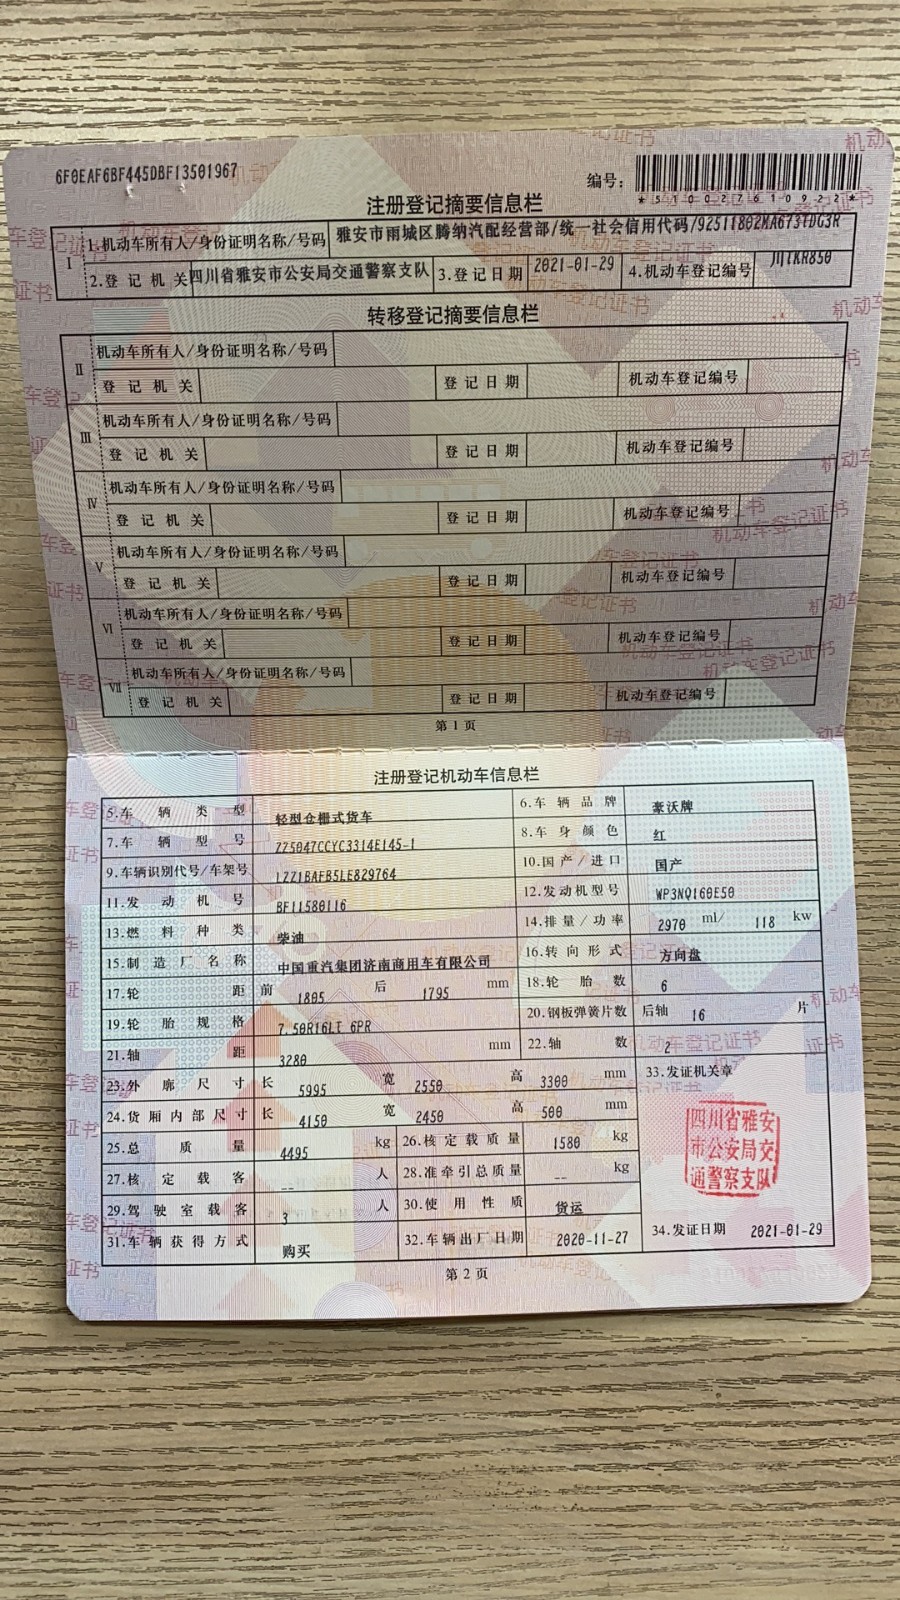 6F0EAF6BF445DBF13501967
编号:
*510027610922*
注册登记摘要信息栏
I 1.机动车所有人/身份证明名称/号码 雅安市雨城区腾纳汽配经营部/统一社会信用代码/92511802MA673TDG3R
2.登记机关 四川省雅安市公安局交通警察支队 3.登记日期 2021-01-29 4.机动车登记编号 川TKR850
转移登记摘要信息栏
II 机动车所有人/身份证明名称/号码
登记机关 登记日期 机动车登记编号
III 机动车所有人/身份证明名称/号码
登记机关 登记日期 机动车登记编号
IV 机动车所有人/身份证明名称/号码
登记机关 登记日期 机动车登记编号
V 机动车所有人/身份证明名称/号码
登记机关 登记日期 机动车登记编号
VI 机动车所有人/身份证明名称/号码
登记机关 登记日期 机动车登记编号
VII 机动车所有人/身份证明名称/号码
登记机关 登记日期 机动车登记编号
第1页
注册登记机动车信息栏
5.车辆类型 轻型仓栅式货车 6.车辆品牌 豪沃牌
7.车辆型号 ZZ5047CCYC3314E145-1 8.车身颜色 红
9.车辆识别代号/车架号 LZZ1BAFB5LE829764 10.国产/进口 国产
11.发动机号 BF11580116 12.发动机型号 WP3NQ160E50
13.燃料种类 柴油 14.排量/功率 2970 ml/ 118 kw
15.制造厂名称 中国重汽集团济南商用车有限公司 16.转向形式 方向盘
17.轮距 前 1805 后 1795 mm 18.轮胎数 6
19.轮胎规格 7.50R16LT 6PR 20.钢板弹簧片数 后轴 16 片
21.轴距 3280 mm 22.轴数 2
23.外廓尺寸 长 5995 宽 2550 高 3300 mm 33.发证机关章
24.货厢内部尺寸 长 4150 宽 2450 高 500 mm
25.总质量 4495 kg 26.核定载质量 1580 kg
27.核定载客 -- 人 28.准牵引总质量 -- kg
29.驾驶室载客 3 人 30.使用性质 货运
31.车辆获得方式 购买 32.车辆出厂日期 2020-11-27 34.发证日期 2021-01-29
四川省雅安
市公安局交
通警察支队
第2页